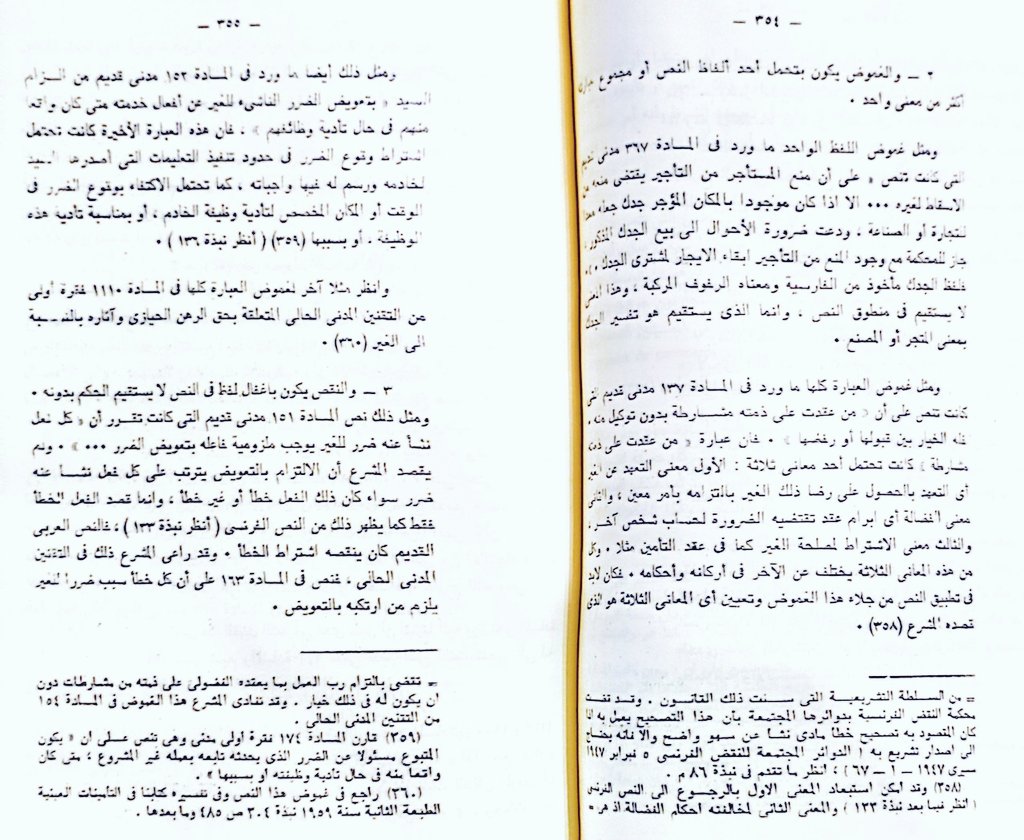 — ٣٥٤ —
٢ — والغموض يكون بتحمل أحد ألفاظ النص أو مجموع
أكثر من معنى واحد .
ومثل غموض اللفظ الواحد ما ورد فى المـادة ٣٦٧ مدنى قديم
التى كانت تنص « على أن منع المستأجر من التأجير يقتضى منعه من
الاسقاط لغيره ٠٠٠ الا اذا كان موجودا بالمكان المؤجر جدك جعله
للتجارة أو الصناعة ، ودعت ضرورة الأحوال الى بيع الجدك المذكور ،
جاز للمحكمة مع وجود المنع من التأجير ابقاء الايجار لمشترى الجدك ٠٠٠ » ،
فلفظ الجدك مأخوذ من الفارسية ومعناه الرفوف المركبة ، وهذا المعنى
لا يستقيم فى منطوق النص ، وانما الذى يستقيم هو تفسير الجدك
بمعنى المتجر أو المصنع .
ومثل غموض العبارة كلها ما ورد فى المـادة ١٣٧ مدنى قديم التى
كانت تنص على أن « من عقدت على ذمته مشـارطة بدون توكيل منه ،
فله الخيار بين قبولها أو رفضها » . فان عبارة « من عقدت على ذمته
مشارطة » كانت تحتمل أحد معانى ثلاثة : الأول معنى التعهد عن الغير
أى التعهد بالحصول على رضا ذلك الغير بالتزامه بأمر معين ، والثانى
معنى الفضالة أى ابرام عقد تقتضيه الضرورة لحساب شخص آخر ،
والثالث معنى الاشتراط لمصلحة الغير كما فى عقد التأمين مثلا . وكل
من هذه المعانى الثلاثة يختلف عن الآخر فى أركانه وأحكامه . فكان لابد
فى تطبيق النص من جلاء هذا الغموض وتعيين أى المعانى الثلاثة هو الذى
قصده المشرع (٣٥٨) .
= من السـلطة التشريعيـة التى سـنت ذلك القانـون . وقـد قضت
محكمة النقض الفرنسية بدوائرها المجتمعة بأن هذا التصحيح يعمل به اذا
كان المقصود به تصحيح خطأ مادى نشأ عن سهو واضح والا فانه يحتاج
الى اصدار تشريع به ( الدوائر المجتمعة للنقض الفرنسى ٥ فبراير ١٩٤٧
سيرى ١٩٤٧ — ١ — ٦٧ ) ، انظر ما تقدم فى نبذة ٨٦ م .
(٣٥٨) وقد أمكن استبعاد المعنى الاول بالرجـوع الى النص الفرنسى
( انظر فيما بعد نبذة ١٣٣ ) والمعنى الثانى لمخالفته احكام الفضالة اذ هى =
— ٣٥٥ —
ومثل ذلك أيضا ما ورد فى المـادة ١٥٢ مدنى قديم من الـزام
السيد « بتعويض الضرر الناشىء للغير عن أفعال خدمته متى كان واقعا
منهم فى حال تأدية وظائفهم » ، فان هذه العبارة الأخيرة كانت تحتمل
اشتراط وقوع الضرر فى حدود تنفيذ التعليمات التى أصدرها السيد
لخادمه ورسم له فيها واجباته ، كما تحتمل الاكتفاء بوقوع الضرر فى
الوقت أو المكان المخصص لتأدية وظيفة الخادم ، أو بمناسبة تأدية هذه
الوظيفة ، أو بسببها (٣٥٩) ( أنظر نبذة ١٣٦ ) .
وانظر مثلا آخر لغموض العبارة كلها فى المـادة ١١١٠ فقرة أولى
من التقنين المدنى الحالى المتعلقة بحق الرهن الحيازى وآثاره بالنسـبة
الى الغير (٣٦٠) .
٣ — والنقص يكون باغفال لفظ فى النص لا يستقيم الحكم بدونه .
ومثل ذلك نص المـادة ١٥١ مدنى قديم التى كانت تقـرر أن « كل فعل
نشأ عنه ضرر للغير يوجب ملزومية فاعله بتعويض الضرر ٠٠٠ » . ولم
يقصد المشرع أن الالتزام بالتعويض يترتب على كل فعل نشـأ عنه
ضرر سواء كان ذلك الفعل خطأ أو غير خطأ ، وانما قصد الفعل الخطأ
فقط كما يظهر ذلك من النص الفرنسى ( أنظر نبذة ١٣٣ ) ، فالنص العربى
القديم كان ينقصه اشتراط الخطأ . وقد راعى المشرع ذلك فى التقنين
المدنى الحالى ، فنص فى المـادة ١٦٣ على أن كل خطأ سبب ضررا للغير
يلزم من ارتكبه بالتعويض .
= تقضى بالتزام رب العمل بما يعقده الفضولى على ذمته من مشارطات دون
ان يكون له فى ذلك خيار . وقد تفادى المشرع هذا الغموض فى المـادة ١٥٤
من التقنين المدنى الحالى .
(٣٥٩) قارن المـادة ١٧٤ فقرة اولى مدنى وهى تنص عـلى ان « يكون
المتبوع مسئولا عن الضرر الذى يحدثه تابعه بعمله غير المشروع ، متى كان
واقعا منه فى حال تأدية وظيفته او بسببها » .
(٣٦٠) راجع فى غموض هذا النص وفى تفسيره كتابنا فى التأمينات العينية
الطبعة الثانية سنة ١٩٥٩ نبذة ٣٠٤ ص ٤٨٥ وما بعدها .